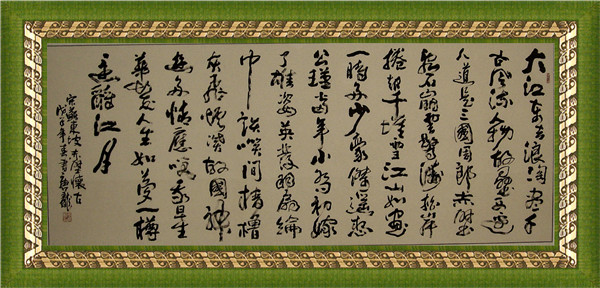 大江東去浪淘盡千
古風流人物故壘西邊
人道是三國周郎赤壁
亂石崩雲驚濤拍岸
捲起千堆雪江山如畫
一時多少豪傑遙想
公瑾當年小喬初嫁
了雄姿英發羽扇綸
巾談笑間檣櫓
灰飛煙滅故國神
遊多情應笑我早生
華髮人生如夢一樽
還酹江月
宋蘇東坡赤壁懷古
戊子年春書